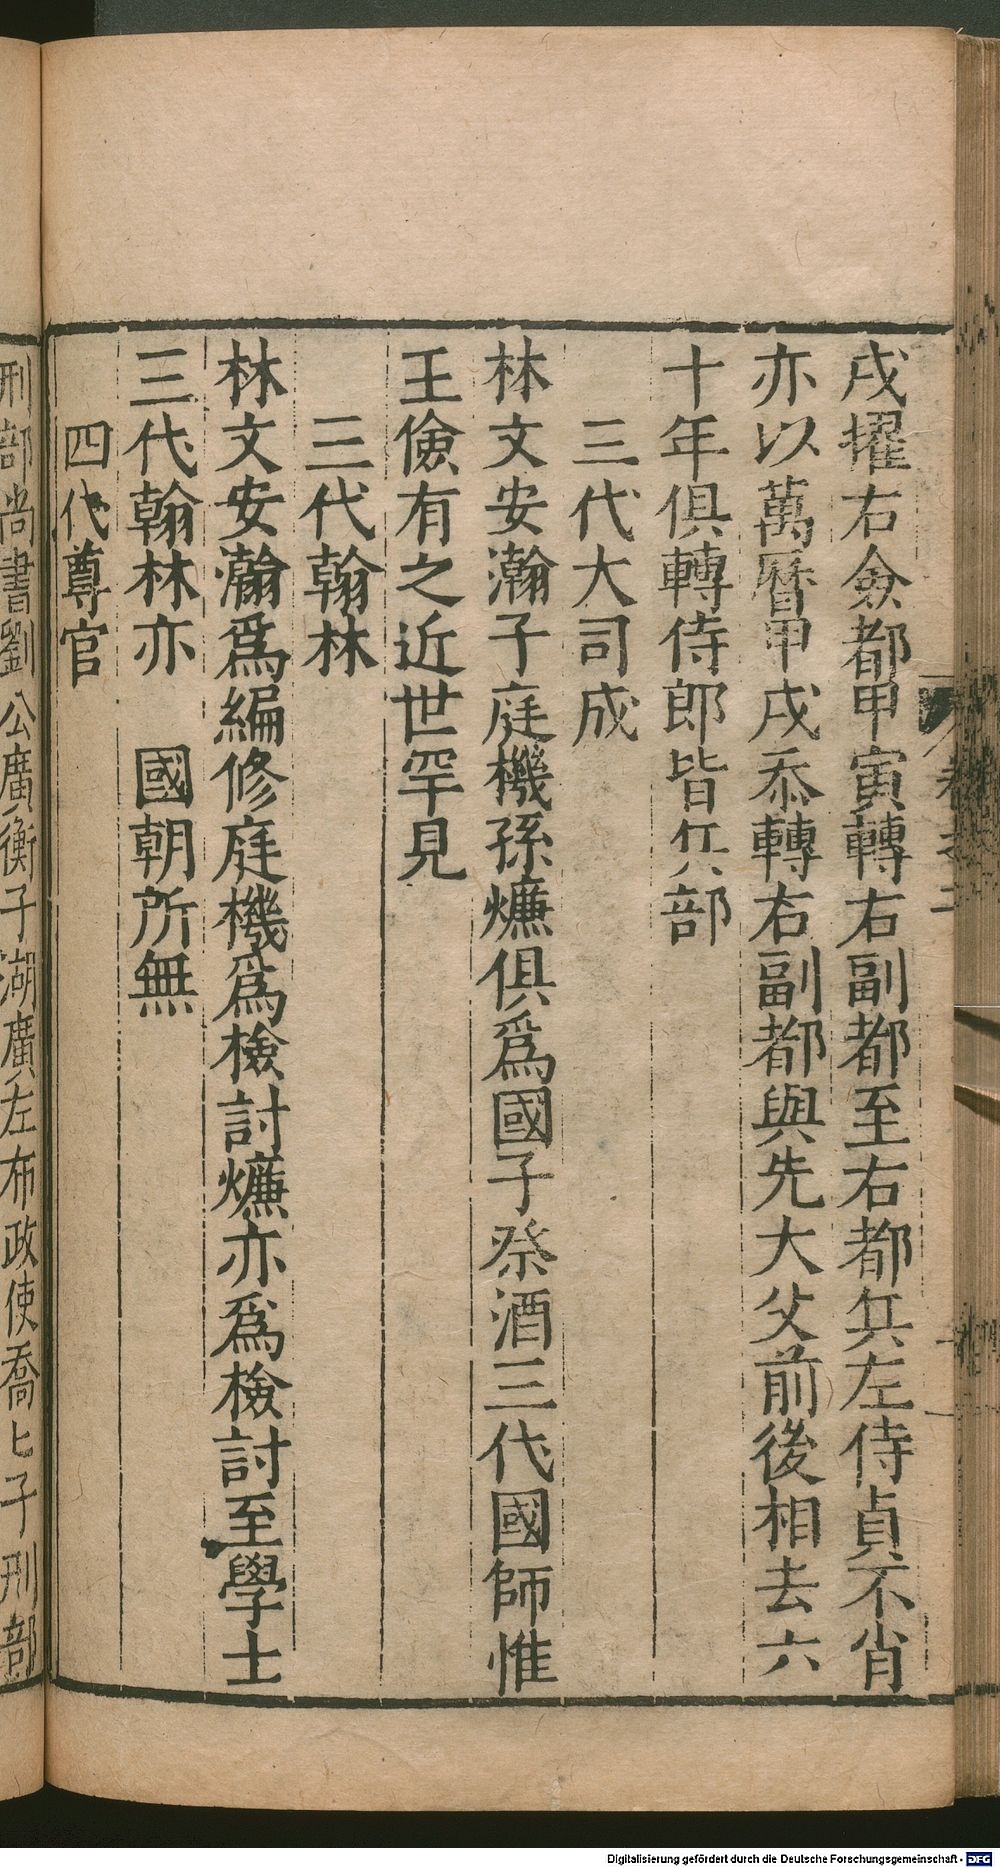 戌擢右僉都甲寅轉右副都至右都兵左侍貞不肖
亦以萬曆甲戌忝轉右副都與先大父前後相去六
十年俱轉侍郎皆兵部
三代大司成
林文安瀚子庭機孫爊俱爲國子祭酒三代國師惟
王儉有之近世罕見
三代翰林
林文安瀚爲編修庭機爲檢討爊亦爲檢討至學士
三代翰林亦 國朝所無
四代尊官
刑部尚書劉公廣衡子湖廣左布政使喬七子刑部
Digitalisierung gefördert durch die Deutsche Forschungsgemeinschaft - DFG